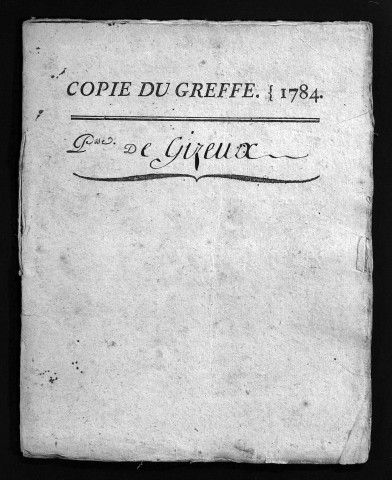 COPIE DU GREFFE. { 1784.
P.sse De Gizeux